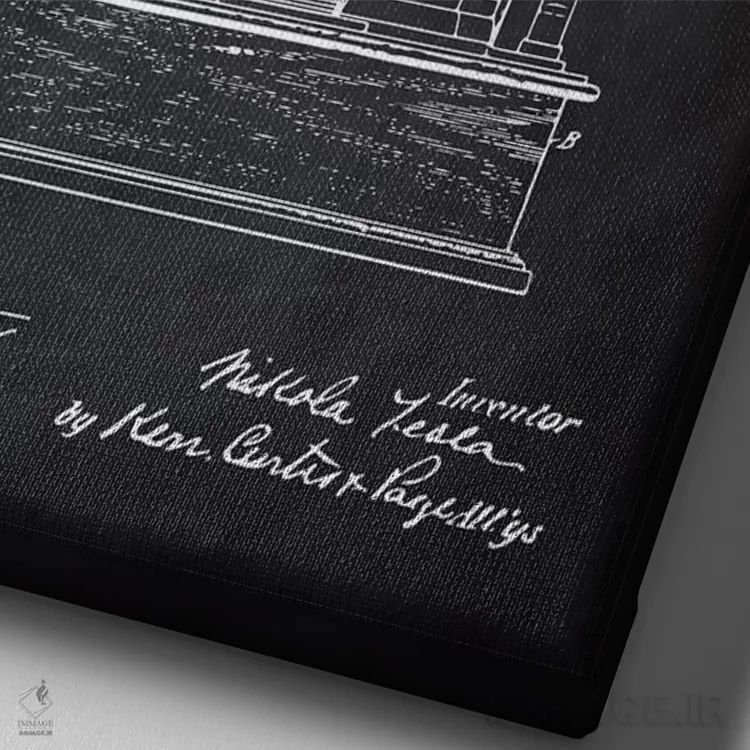 B
Inventor
Nikola Tesla
by Kerr, Curtis & Page Att'ys
IMMAGE
IMMAGE.IR
IMMAGE.IR